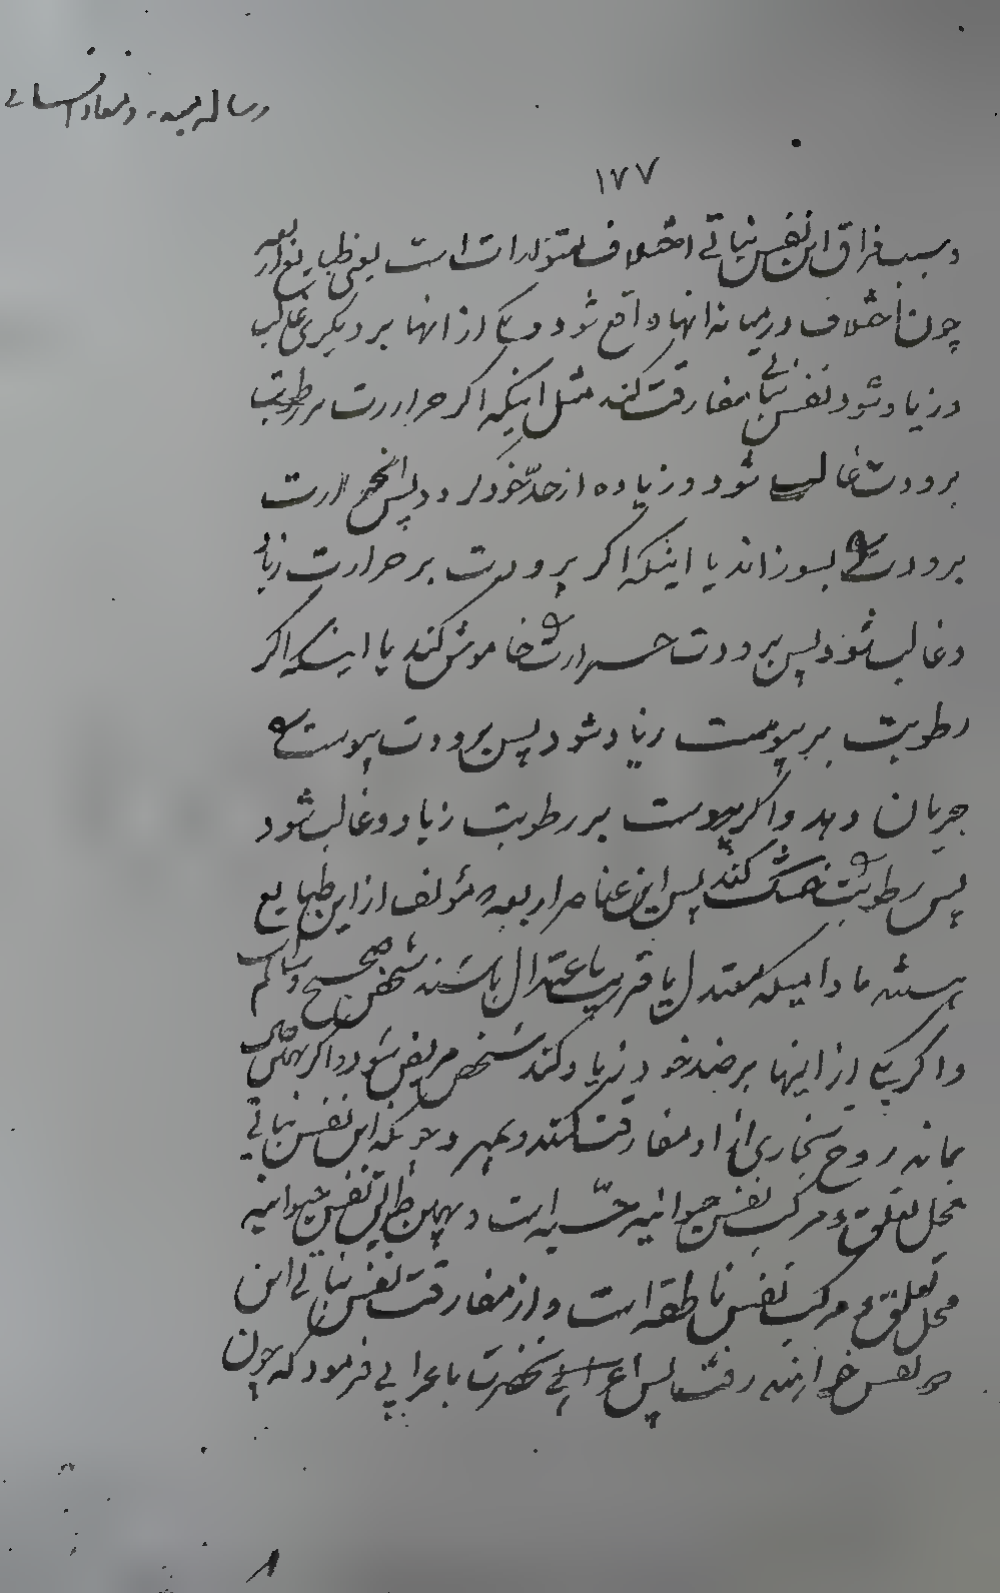 رساله مبدء و معاد انسانی
۱۷۷
و سبب فراق این نفس نباتی اختلاف متولدات است یعنی طبایع اربعه
چون اختلاف در میانه انها واقع شود و یکی از انها بر دیگری غالب
و زیاد شود نفس نباتی مفارقت کند مثل اینکه اگر حرارت بر رطوبت
برودت غالب شود و زیاده از حدّ خود پس حرارت
برودت را بسوزاند یا اینکه اگر برودت بر حرارت زیاد
و غالب شود پس برودت حرارت را خاموش کند یا اینکه اگر
رطوبت بر یبوست زیاد شود پس برودت یبوست را
جریان دهد و اگر یبوست بر رطوبت زیاد و غالب شود
پس رطوبت را خشک کند پس این عناصر اربعه مؤلف از این طبایع
هستند مادامیکه معتدل یا قریب باعتدال باشند شخص صحیح و سالم است
و اگر یکی از اینها بر ضد خود زیاد کند شخص مریض شود و اگر بهمان حال
بماند روح بخاری از او مفارقت کند و بمیرد و چونکه این نفس نباتی
محل تعلق و مرکب نفس حیوانیه حسّیه است و بهمین طریق نفس حیوانیه
محل تعلق و مرکب نفس ناطقه است و از مفارقت نفس نباتی این
دو نفس خواهند رفت پس حضرت باعرابی فرمود که چون